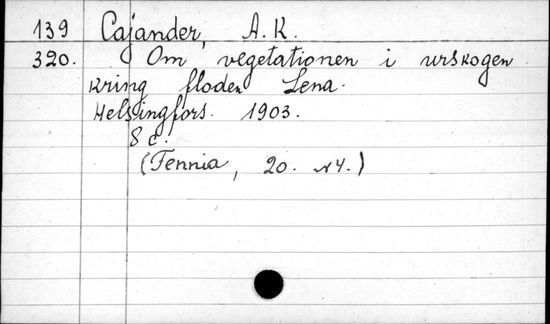 139 Cajander, A. K.
320. Om vegetationen i urskogen
kring floden Lena.
Helsingfors. 1903.
8 c.
(Fennia, 20. N4.)